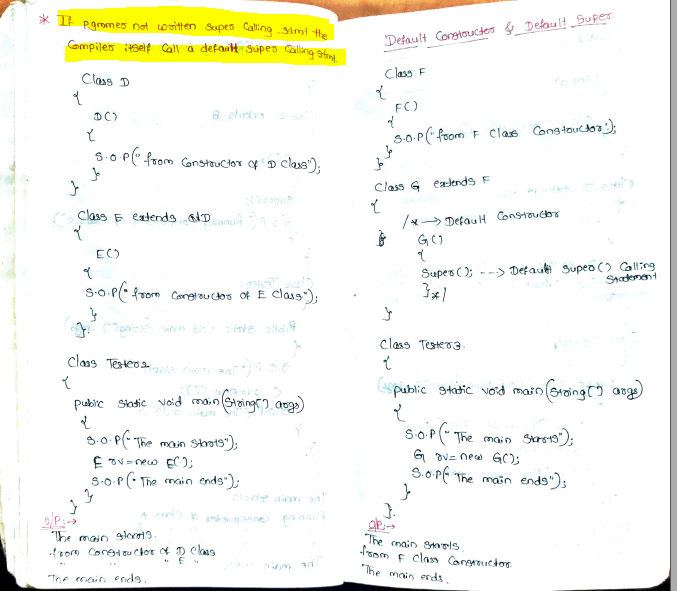 * If Pgmmer not written super calling stmt the
Compiler itself Call a default super Calling stmt.
Class D
{
D()
{
S.O.P("from Constructor of D class");
}
}
Class E extends D
{
E()
{
S.O.P("from Constructor of E Class");
}
}.
Class Tester2
{
public static void main(String[] args)
{
S.O.P("The main starts");
E rv=new E();
S.O.P("The main ends");
}
}
O/P:→
The main starts.
from Constructor of D Class
" " " E "
The main ends.
Default Constructor & Default Super
Class F
{
F()
{
S.O.P("from F Class Constructor");
}
}
Class G extends F
{
/*→ Default Constructor
G()
{
Super(); ---> Default Super() Calling
Statement
}*/
}
Class Tester3.
{
public static void main(String[] args)
{
S.O.P("The main starts");
G rv= new G();
S.O.P("The main ends");
}
}.
O/P:→
The main starts.
from F Class Constructor
The main ends.